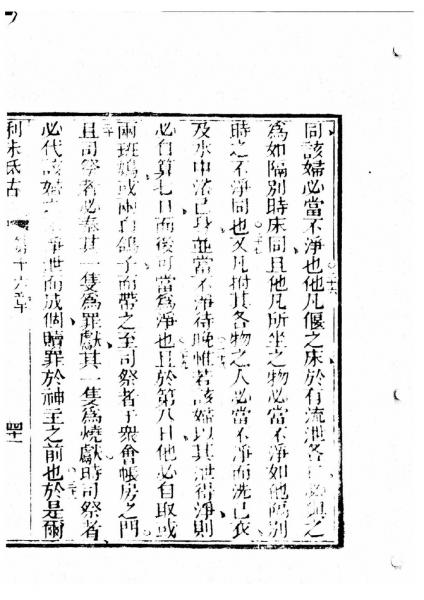 同該婦必當不淨也他凡偃之床於有流泄各日必與之
為如隔別時床同且他凡所坐之物必當不淨如他隔別
時之不淨同也又凡拊其各物之人必當不淨而洗己衣
及水中浴己身並當不淨待晚惟若該婦以其泄得淨則
必自算七日而後可當為淨也且於第八日他必自取或
兩班鳩或兩白鴿子而帶之至司祭者于眾會帳房之門
且司祭者必奉其一隻為罪獻其一隻為燒獻時司祭者
必代該婦淨泄而成個贖罪於神主之前也於是爾
利未氏古 第十六章